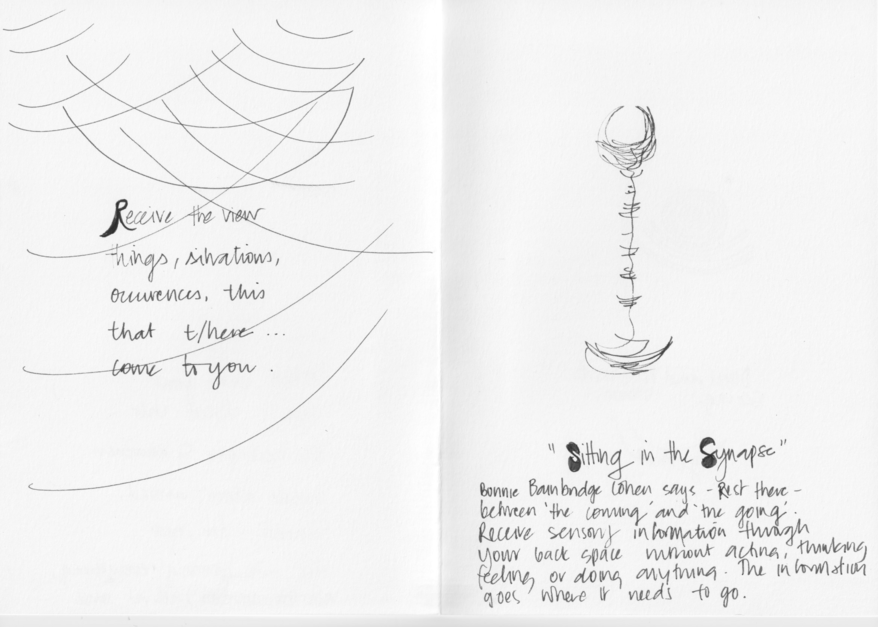 Receive the view
things, situations,
occurences, this
that t/here ...
come to you.
"Sitting in the Synapse"
Bonnie Bainbridge Cohen says - Rest there -
between 'the coming' and 'the going'.
Receive sensory information through
your back space without acting, thinking
feeling or doing anything. The information
goes where it needs to go.